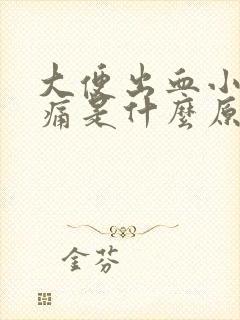 大便出血小
痛是什麼原
金芬